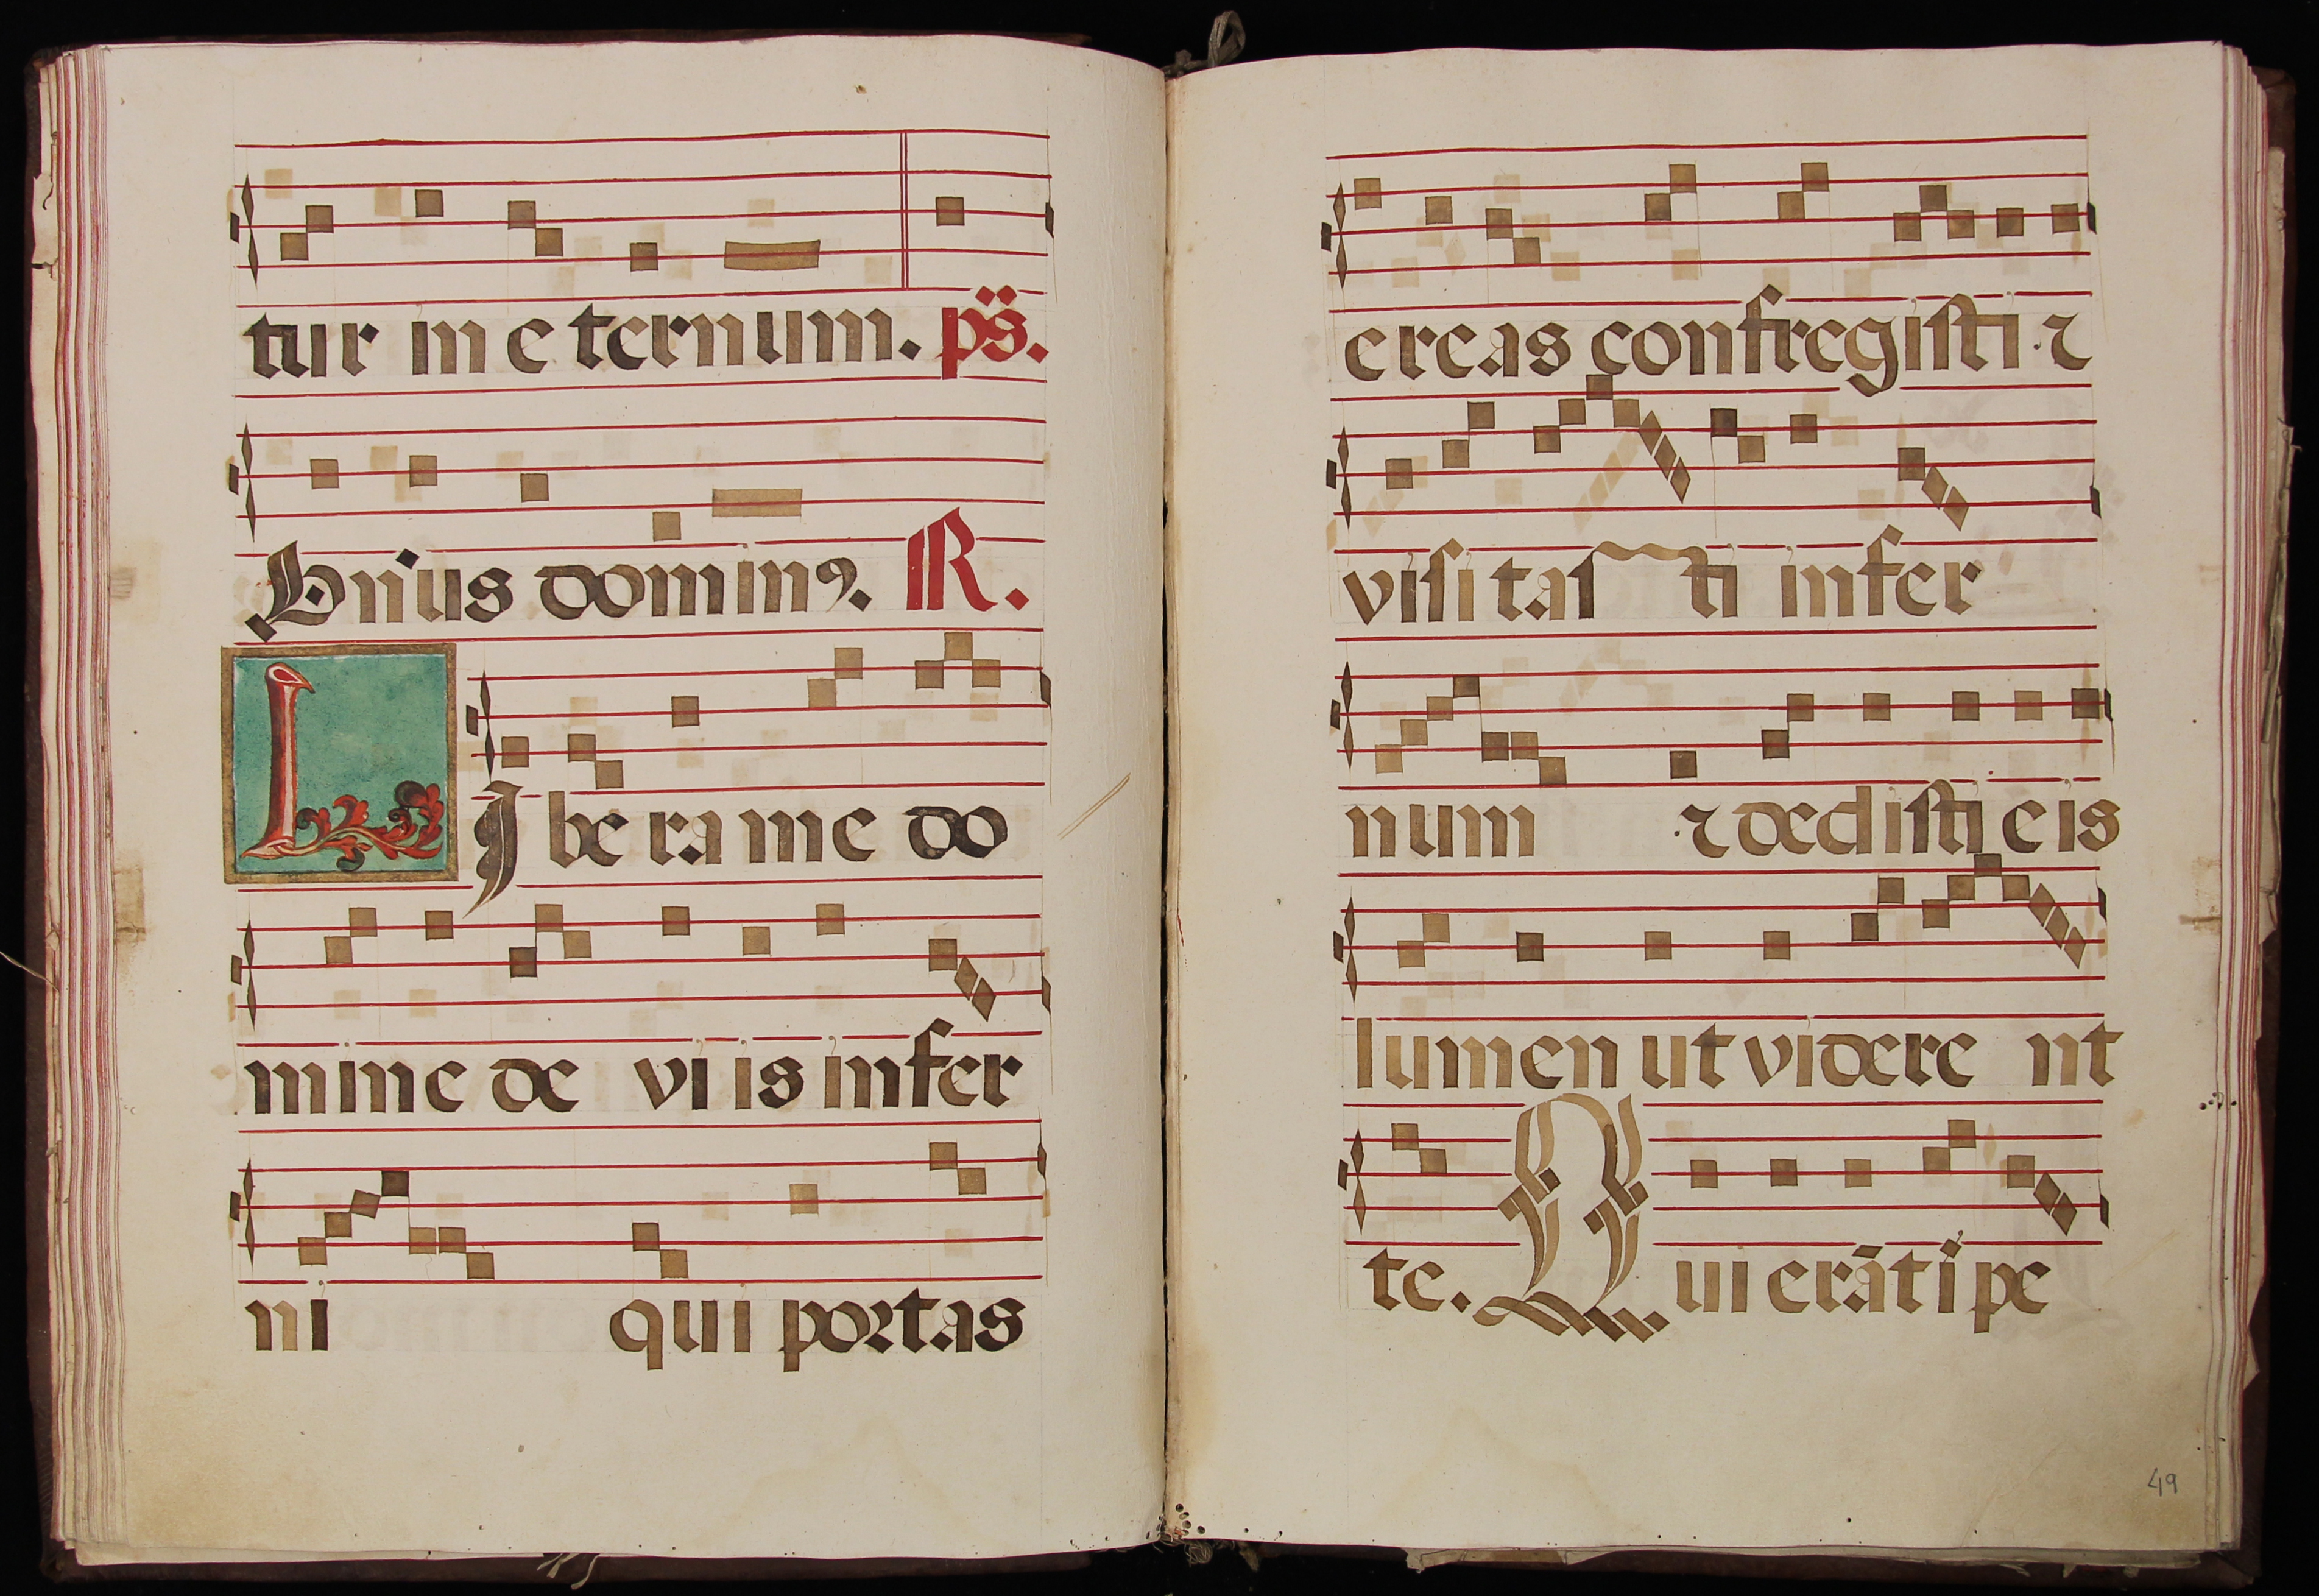 tur in e ternum. ps.
Bonus dominꝰ. R.
LIbera me do
mine de viis infer
ni qui portas
ereas confregisti ⁊
visitasti infer
num ⁊ dedisti eis
lumen ut viderent
te. Qui erāt i pe
49